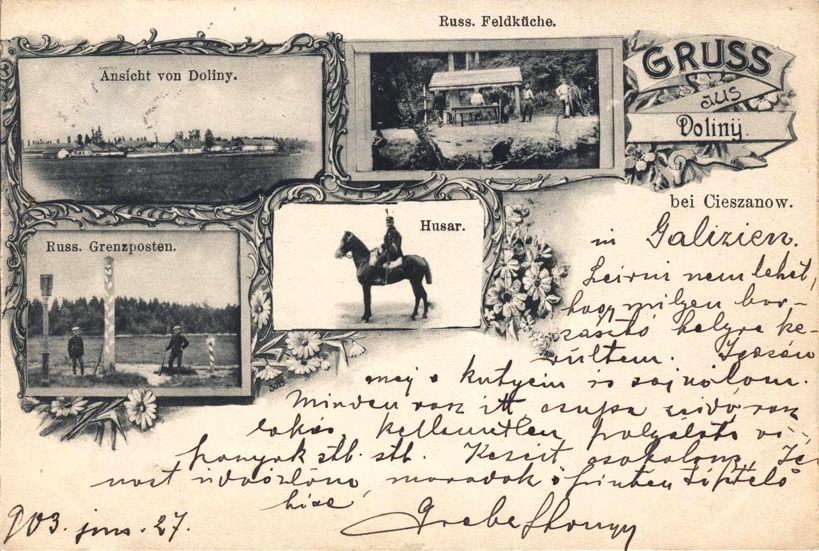 Russ. Feldküche.
Ansicht von Doliny.
GRUSS
aus
Doliny.
bei Cieszanow.
Husar.
Russ. Grenzposten.
in Galizien.
Leirni nem lehet,
hogy milyen bor-
zasztó helyre ke-
rültem. Igazán
még a kutyám is sajnálom.
Minden rossz itt, csupa zsidó rossz
lakás, kellemetlen
stb. stb. Kezeit csókolom,
üdvözlöm, maradok őszinte tisztelő
híve,
903. jun. 27.